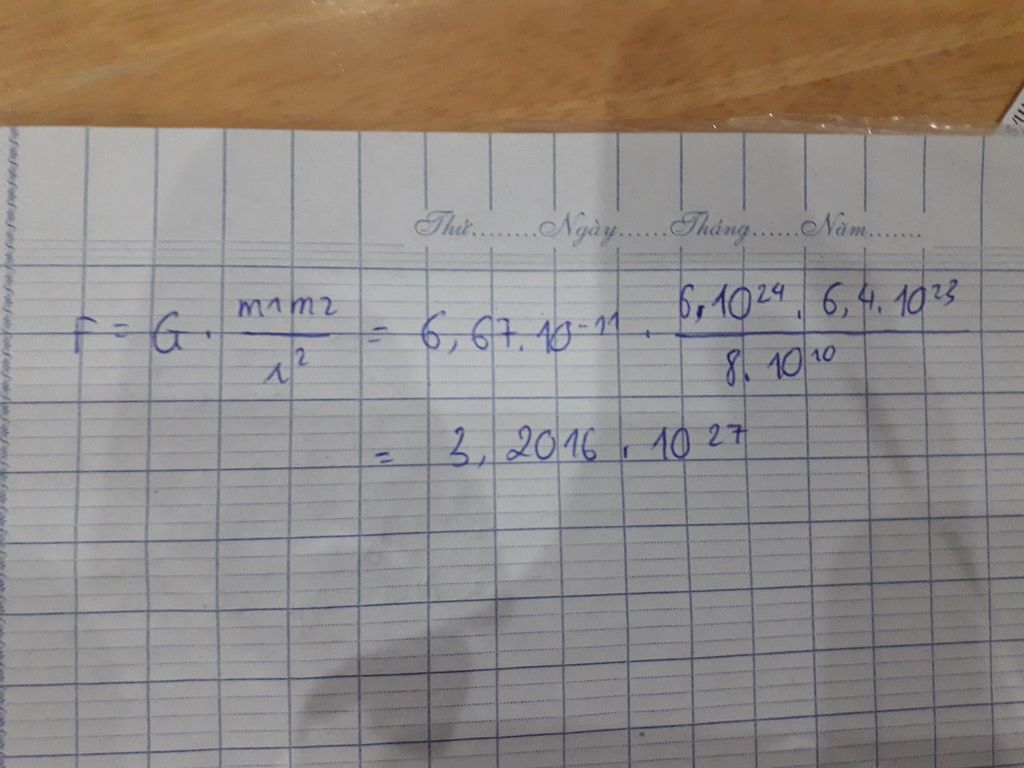 Thứ........Ngày......Tháng......Năm.......
F = G . m1m2 / r² = 6,67.10⁻¹¹ . 6.10²⁴ . 6,4.10²³ / 8.10¹⁰
= 3,2016 . 10²⁷